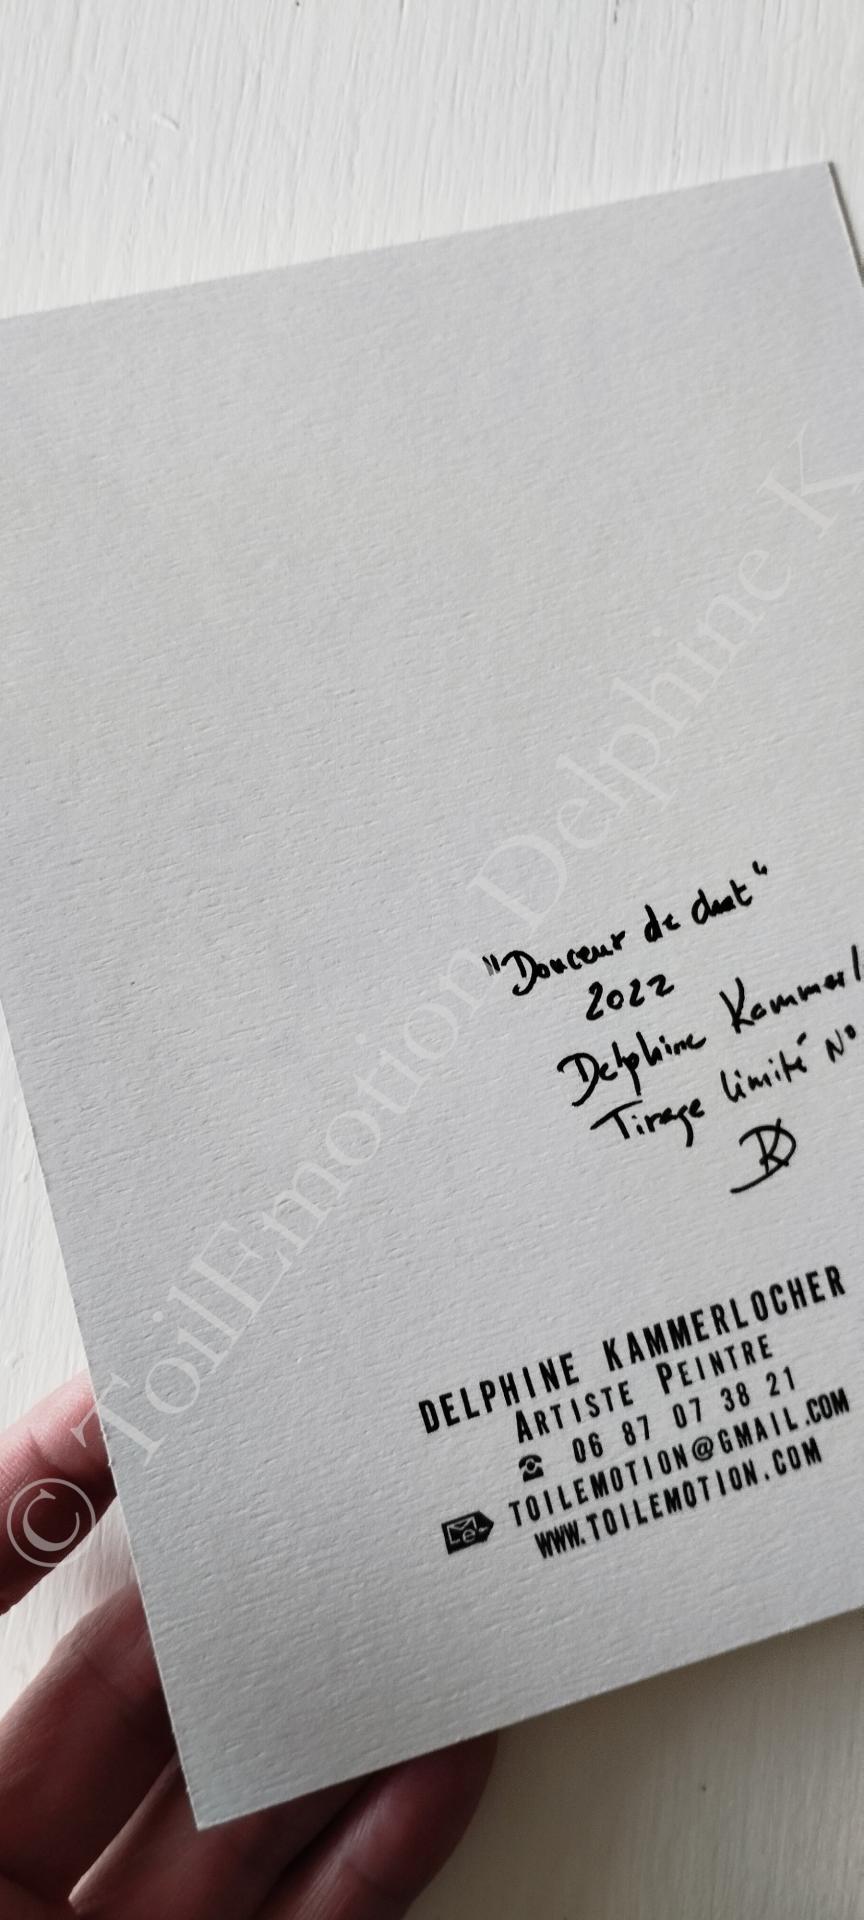 "Douceur de chat"
2022
Delphine Kammerl
Tirage limité N°
DK
DELPHINE KAMMERLOCHER
ARTISTE PEINTRE
☎ 06 87 07 38 21
e- TOILEMOTION@GMAIL.COM
WWW.TOILEMOTION.COM
© ToilEmotion Delphine K